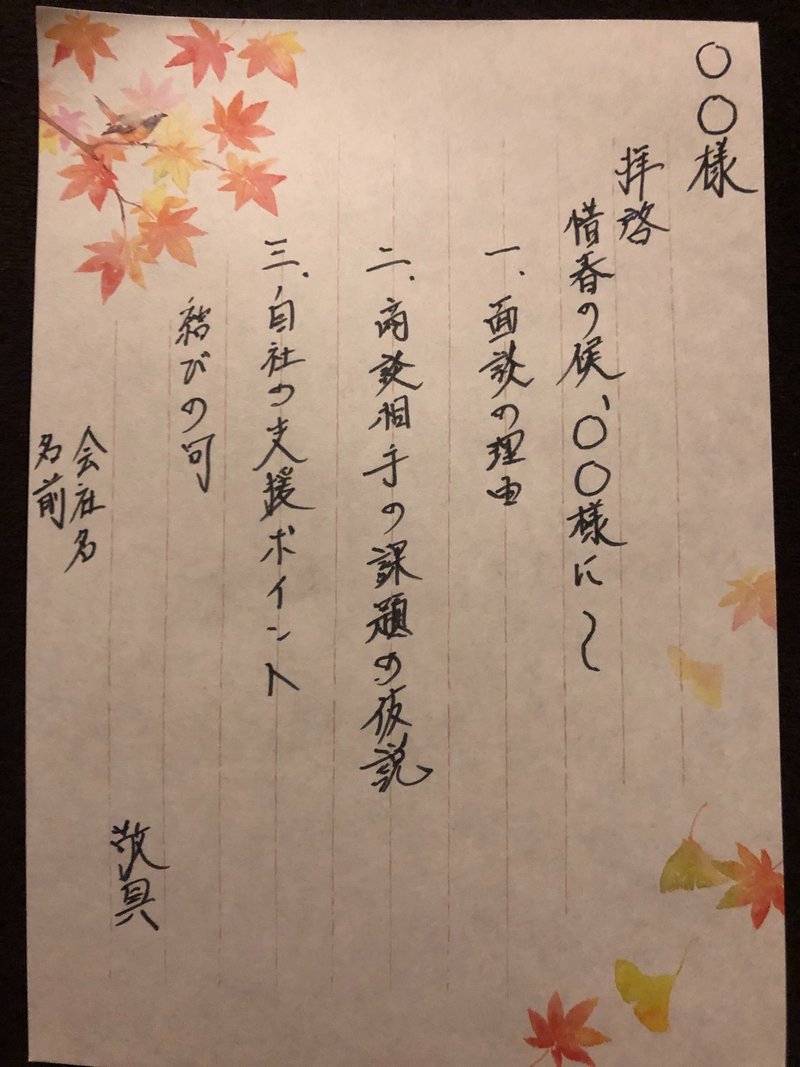 〇〇様
拝啓
惜春の候、〇〇様に〜
一、面談の理由
二、商談相手の課題の仮説
三、自社の支援ポイント
結びの句
敬具
会社名
名前